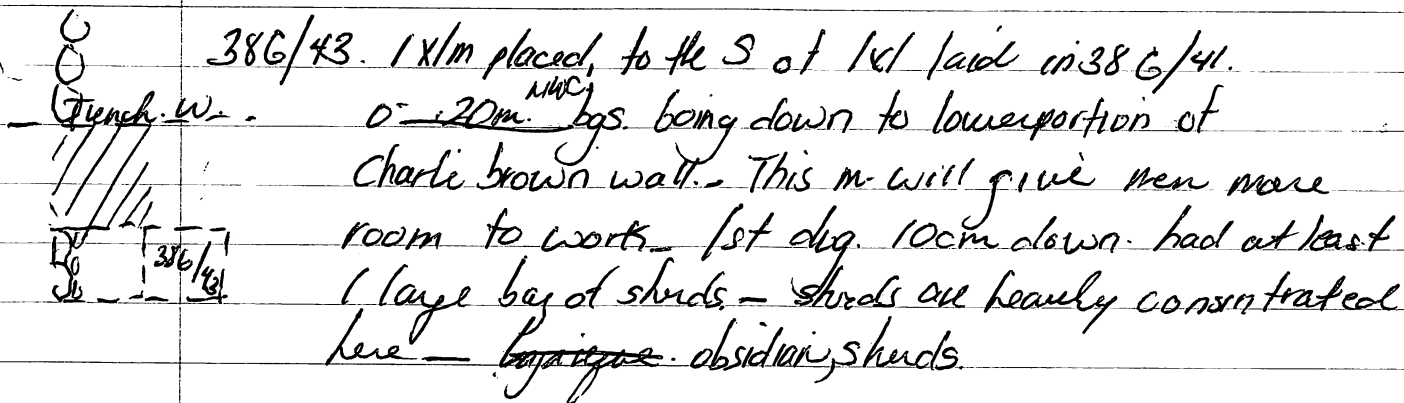 38G/43. 1x1m placed, to the S of 1x1 laid in 38G/41.
Trench. W. 0 - .20m. NWC bgs. boing down to lowerportion of
Charlie brown wall. - This m. will give men more
room to work - 1st dug. 10cm down. had at least
38G/43
1 large bag of sherds - sherds are heavily consentrated
here - obsidian, sherds.